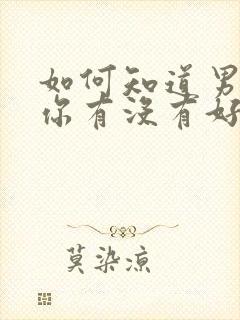 如何知道男
你有没有好
莫染凉